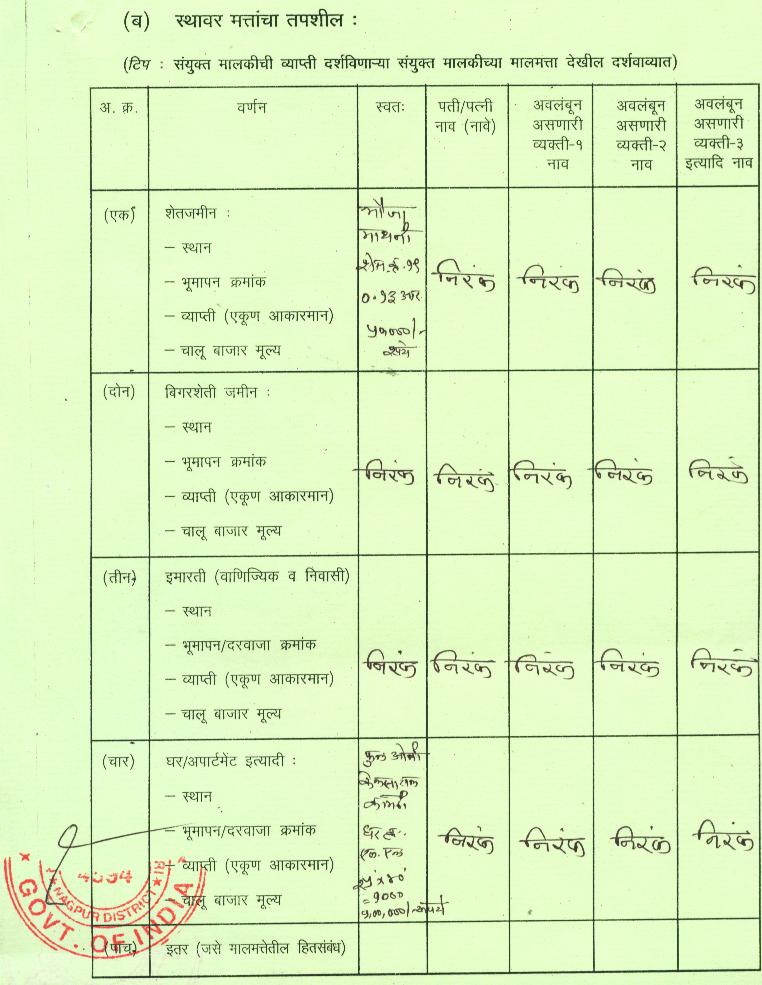 (ब) स्थावर मत्तांचा तपशील :
(टिप : संयुक्त मालकीची व्याप्ती दर्शविणाऱ्या संयुक्त मालकीच्या मालमत्ता देखील दर्शवाव्यात)
अ. क्र. वर्णन स्वतः पती/पत्नी नाव (नावे) अवलंबून असणारी व्यक्ती-१ नाव अवलंबून असणारी व्यक्ती-२ नाव अवलंबून असणारी व्यक्ती-३ इत्यादि नाव
(एक) शेतजमीन : मौजा
– स्थान माथनी
– भूमापन क्रमांक निरंक निरंक निरंक निरंक
– व्याप्ती (एकूण आकारमान) ०.१३ आर
– चालू बाजार मूल्य रुपये
(दोन) बिगरशेती जमीन :
– स्थान
– भूमापन क्रमांक निरंक निरंक निरंक निरंक निरंक
– व्याप्ती (एकूण आकारमान)
– चालू बाजार मूल्य
(तीन) इमारती (वाणिज्यिक व निवासी)
– स्थान
– भूमापन/दरवाजा क्रमांक
– व्याप्ती (एकूण आकारमान) निरंक निरंक निरंक निरंक निरंक
– चालू बाजार मूल्य
(चार) घर/अपार्टमेंट इत्यादी :
– स्थान
– भूमापन/दरवाजा क्रमांक निरंक निरंक निरंक निरंक
– व्याप्ती (एकूण आकारमान)
– चालू बाजार मूल्य = १०००
१,००,०००/- रुपये
NAGPUR DISTRICT
GOVT. OF INDIA
(पाच) इतर (जसे मालमत्तेतील हितसंबंध)